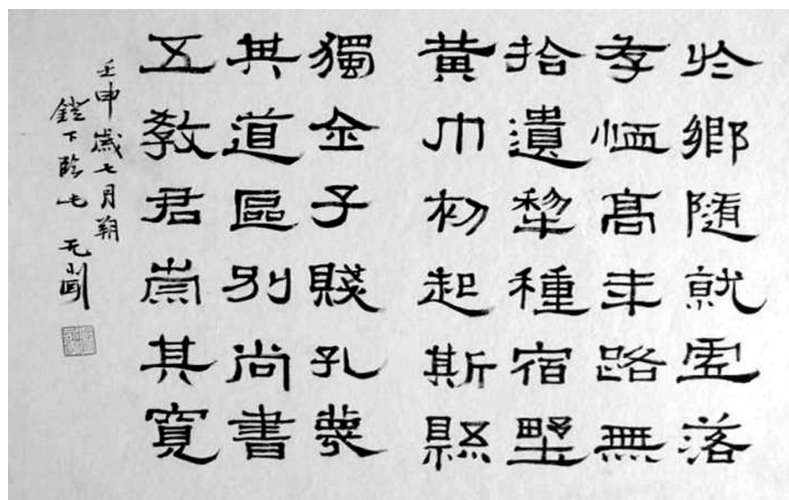 於鄉隨就虛落
存恤高年路無
拾遺犁種宿野
黃巾初起斯縣
獨全子賤孔蔑
其道區別尚書
五教君崇其寬
壬申歲七月朔
鐙下臨也 无聞